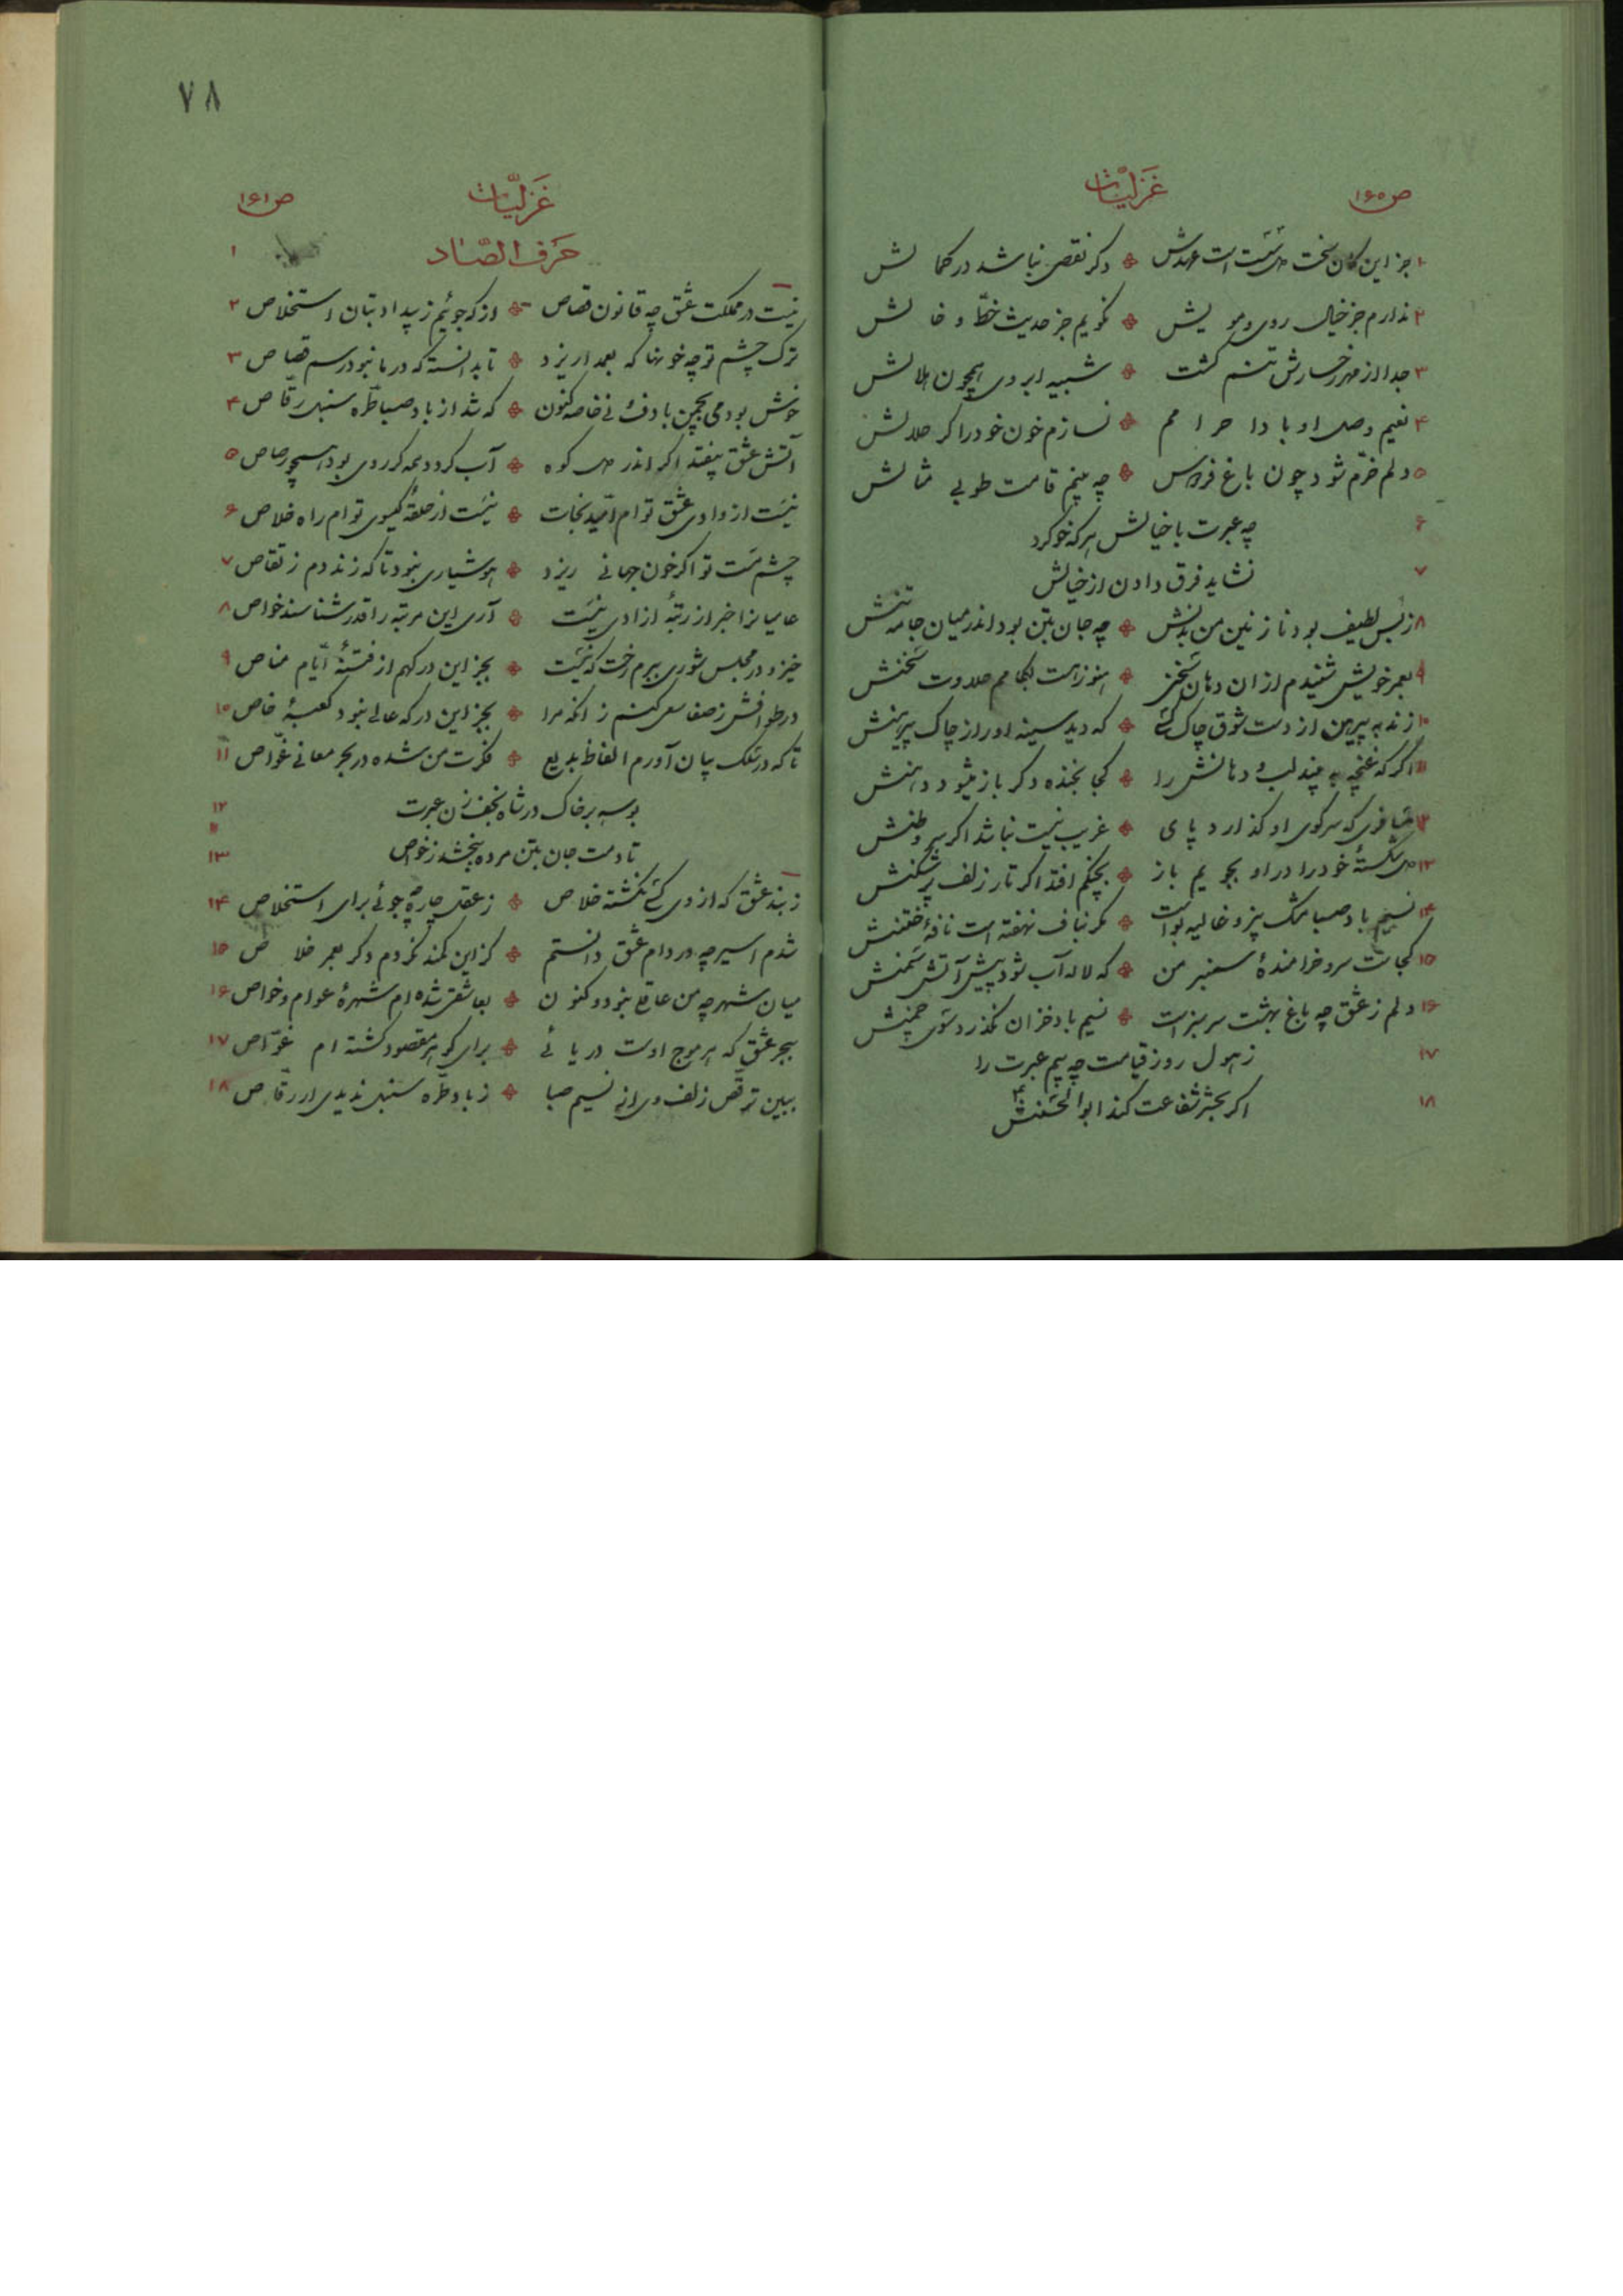 غزلیات
ص ۱۶۵
۱ جز این کان سخت سست است عهدش ❖ دکر نقصی نباشد در کمالش
۲ ندارم جز خیال روی و مویش ❖ نکویم جز حدیث خطّ و خالش
۳ جدا از مهر رخسارش تنم کشت ❖ شبیه ابروی همچون هلالش
۴ نعیم وصل او بادا حرامم ❖ نسازم خون خود را کر حلالش
۵ دلم خرّم شود چون باغ فردوس ❖ چه بینم قامت طوبی مثالش
۶ چه عبرت با خیالش هر که خو کرد
۷ نشاید فرق دادن از خیالش
۸ ز بس لطیف بود نازنین من بدنش ❖ چه جان بتن بود اندر میان جامه تنش
۹ بعمر خویش شنیدم از ان دهان سخنی ❖ هنوز است بکامم حلاوت سخنش
۱۰ زند به پیرهن از دست شوق چاک کسی ❖ که دید سینه او را ز چاک پیرهنش
۱۱ اکر که غنچه به بیند لب و دهانش را ❖ کجا بخنده دکر باز میشود دهنش
۱۲ مسافری که بر کوی او کذارد پای ❖ غریب نیست نباشد اکر وطنش
۱۳ دل شکستهٔ خود را در او بجویم باز ❖ بچنکم افتد اکر تار زلف پر شکنش
۱۴ نسیم باد صبا مشک بیز و غالیه بوست ❖ مکر بناف نهفته است نافهٔ ختنش
۱۵ کجاست سرو خرامندهٔ سمنبر من ❖ که لاله آب شود پیش آتش سمنش
۱۶ دلم ز عشق چه باغ بهشت سرسبز است ❖ نسیم باد خزان نکذرد سوی چمنش
۱۷ ز هول روز قیامت چه بیم عبرت را
۱۸ اکر بحشر شفاعت کند ابوالحسنش
۷۸
غزلیّات
ص ۱۶۱
حرف الصّاد ۱
نیست در مملکت عشق چه قانون قصاص ❖ از که جوئیم ز بیداد بتان استخلاص ۲
ترک چشم تو چه خونها که بعمدا ریزد ❖ تا بدانسته که در ما نبود رسم قصاص ۳
خوش بود می بچمن با دف و نی خاصه کنون ❖ که شد از باد صبا طرّه سنبل رقّاص ۴
آتش عشق بیفتد اکر اندر دل کوه ❖ آب کردد همه کر روی بود همچو رصاص ۵
نیست از وادی عشق توام امّید نجات ❖ نیست از حلقهٔ کیسوی توام راه خلاص ۶
چشم مست تو اکر خون جهانی ریزد ❖ هوشیاری نبود تا که زند دم ز تقاص ۷
عامیانرا خبر از رتبهٔ ازادی نیست ❖ آری این مرتبه را قدر شناسند خواص ۸
خیز و در مجلس شوری ببرم رخت که نیست ❖ بجز این درکهم از فتنهٔ ایّام مناص ۹
در طوافش ز صفا سعی کنم ز انکه مرا ❖ بجز این درکه عالی نبود کعبهٔ خاص ۱۰
تا که در سلک بیان آورم الفاظ بدیع ❖ فکرت من شده در بحر معانی غوّاص ۱۱
بوسه بر خاک در شاه نجف زن عبرت ۱۲
تا دمت جان بتن مرده ببخشد ز خواص ۱۳
ز بند عشق که از وی کسی نکشته خلاص ❖ ز عقل چاره چه جوئی برای استخلاص ۱۴
شدم اسیر چه در دام عشق دانستم ❖ کز این کمند نکردم دکر بعمر خلاص ۱۵
میان شهر چه من عاقلی نبود و کنون ❖ بعاشقی شده ام شهرهٔ عوام و خواص ۱۶
ببحر عشق که هر موج اوست دریائی ❖ برای کوهر مقصود کشته ام غوّاص ۱۷
ببین ترقّص زلف وی از نسیم صبا ❖ ز باد طرّه سنبل ندیدی ار رقّاص ۱۸